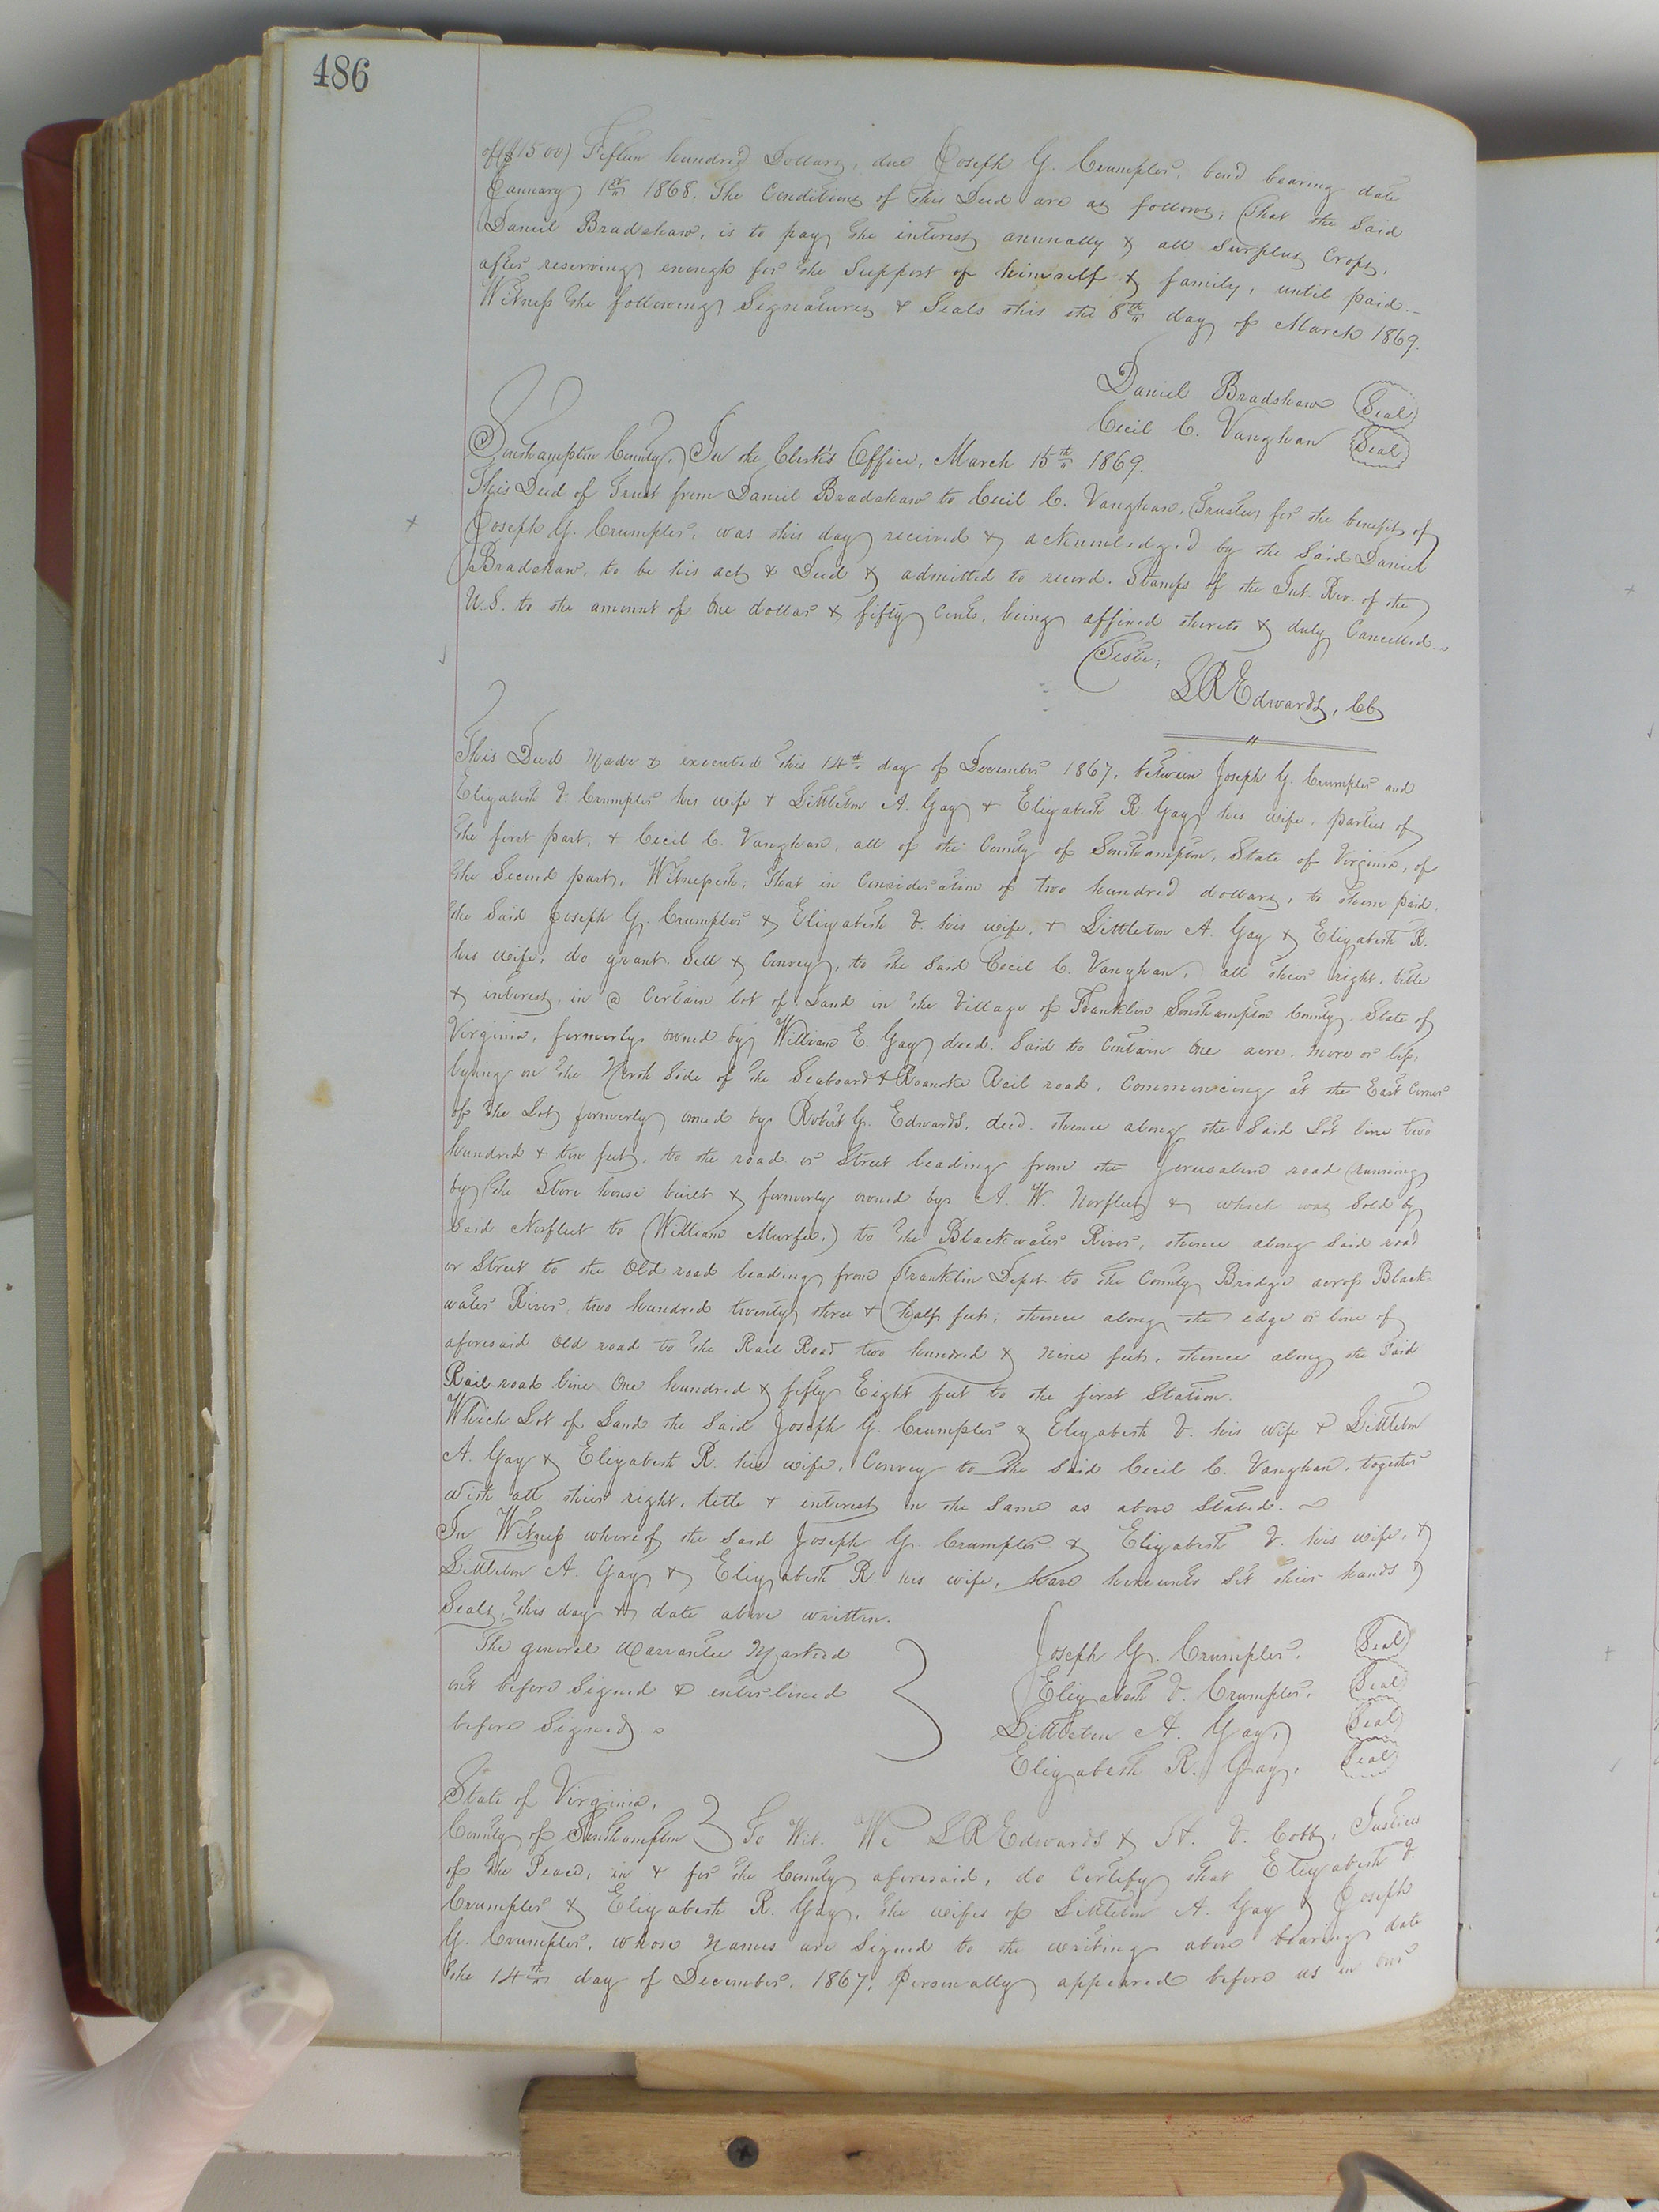 486
of ($1500) Fifteen hundred Dollars, due Joseph G. Crumpler, bond bearing date
January 1st 1868. The Conditions of this Deed are as follows, that the Said
Daniel Bradshaw, is to pay the interest annually & all Surplus Crops,
after reserving enough for the Support of himself & family, until paid.—
Witness the following Signatures & Seals this the 8th day of March 1869.
Daniel Bradshaw (Seal)
Cecil C. Vaughan (Seal)
Southampton County, In the Clerk's Office, March 15th 1869.
This Deed of Trust from Daniel Bradshaw to Cecil C. Vaughan, Trustee, for the benefit of
Joseph G. Crumpler, was this day received & acknowledged by the Said Daniel
Bradshaw, to be his act & Deed & admitted to record. Stamps of the Int. Rev. of the
U.S. to the amount of One dollar & fifty Cents, being affixed thereto & duly Cancelled.
Teste,
LREdwards, CC
This Deed Made & executed this 14th day of December 1867, between Joseph G. Crumpler and
Elizabeth V. Crumpler his wife & Littleton A. Gay & Elizabeth R. Gay his wife, parties of
the first part, & Cecil C. Vaughan, all of the County of Southampton, State of Virginia, of
the Second part, Witnesseth; That in Consideration of two hundred dollars, to them paid,
the Said Joseph G. Crumpler & Elizabeth V. his wife, & Littleton A. Gay & Elizabeth R.
his wife, do grant, Sell & Convey, to the Said Cecil C. Vaughan, all their right, title
& interest, in @ Certain Lot of Land in the Village of Franklin Southampton County, State of
Virginia, formerly owned by William E. Gay decd. Said to Contain One acre, more or less,
lying on the North Side of the Seaboard & Roanoke Rail road, Commencing at the East Corner
of the Lot formerly owned by Robert G. Edwards, decd. thence along the Said Lot line two
hundred & ten feet, to the road or Street leading from the Jerusalem road (running
by the Store house built & formerly owned by A. W. Norfleet & which was Sold by
Said Norfleet to William Murfee,) to the Blackwater River, thence along Said road
or Street to the Old road leading from Franklin Depot to the County Bridge across Black-
water River, two hundred twenty three & half feet, thence along the edge or line of
aforesaid Old road to the Rail Road two hundred & nine feet, thence along the Said
Rail road line One hundred & fifty Eight feet to the first Station.
Which Lot of Land the Said Joseph G. Crumpler & Elizabeth V. his wife & Littleton
A. Gay & Elizabeth R. his wife, Convey to the Said Cecil C. Vaughan, together
with all their right, title & interest in the Same as above Stated.
In Witness whereof the Said Joseph G. Crumpler & Elizabeth V. his wife, &
Littleton A. Gay & Elizabeth R. his wife, have hereunto Set their hands &
Seals, this day & date above written.
The general Warrantee Marked
out before Signed & enterlined
before Signed.
Joseph G. Crumpler. (Seal)
Elizabeth V. Crumpler. (Seal)
Littleton A. Gay, (Seal)
Elizabeth R. Gay. (Seal)
State of Virginia,
County of Southampton } To Wit. We LREdwards & A. V. Cobb, Justices
of the Peace, in & for the County aforesaid, do Certify that Elizabeth V.
Crumpler & Elizabeth R. Gay, the wifes of Littleton A. Gay & Joseph
G. Crumpler, whose Names are Signed to the writing above bearing date
the 14th day of December, 1867, personally appeared before us in our